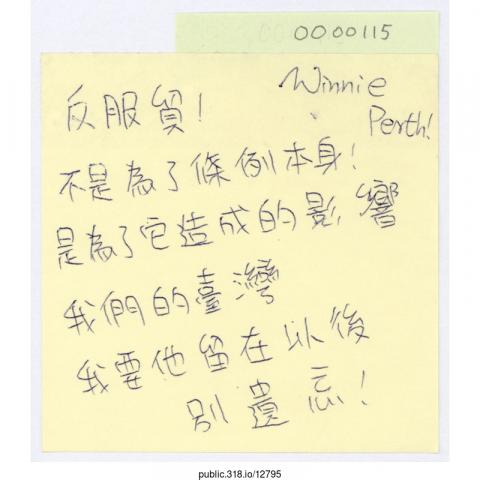 0000115
Winnie
Perth!
反服貿!
不是為了條例本身!
是為了它造成的影響
我們的臺灣
我要他留在以後
別遺忘!
public.318.io/12795